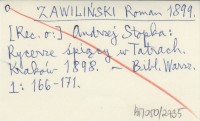 ZAWILIŃSKI Roman 1899.
[Rec. o:] Andrzej Stopka:
Rycerze śpiący w Tatrach.
Kraków 1898. – Bibl. Warsz.
1: 166-171.